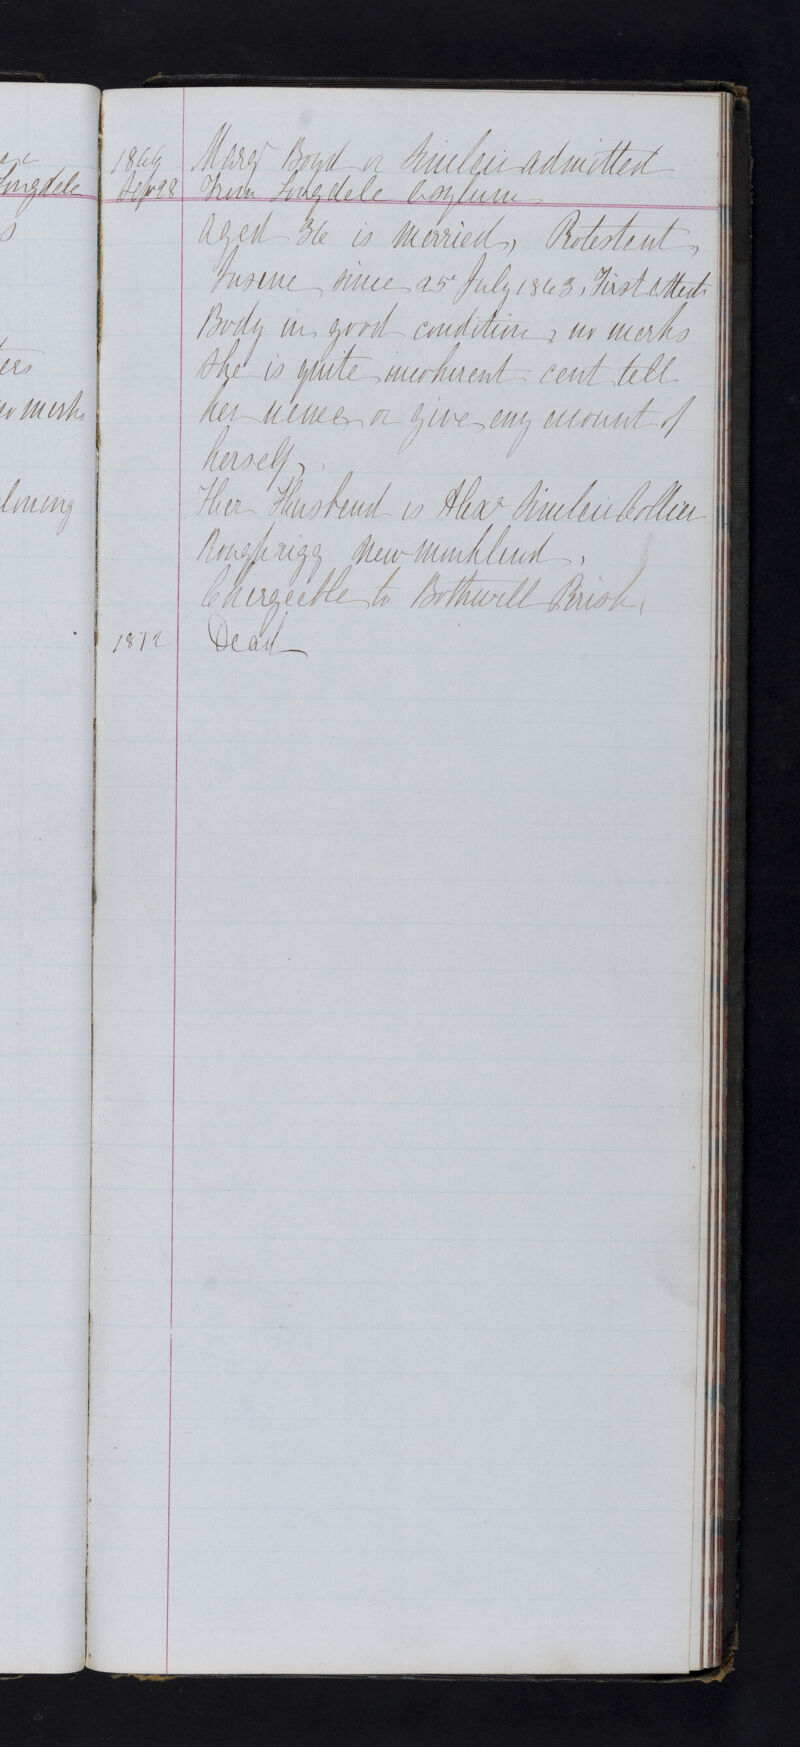 Longdale
s
ters
no marks
1866 Margt Boyd or Sinclair admitted
Sep 28 From Longdale Asylum
aged 36 is married, Protestant,
Insane since 25 July 1863, First attack
Body in good condition, no marks
She is quite incoherent cant tell
her name or give any account of
herself,
Her Husband is Alexr Sinclair Collier
Roughrigg New Monkland,
Chargeable to Bothwell Parish,
1872 Dead